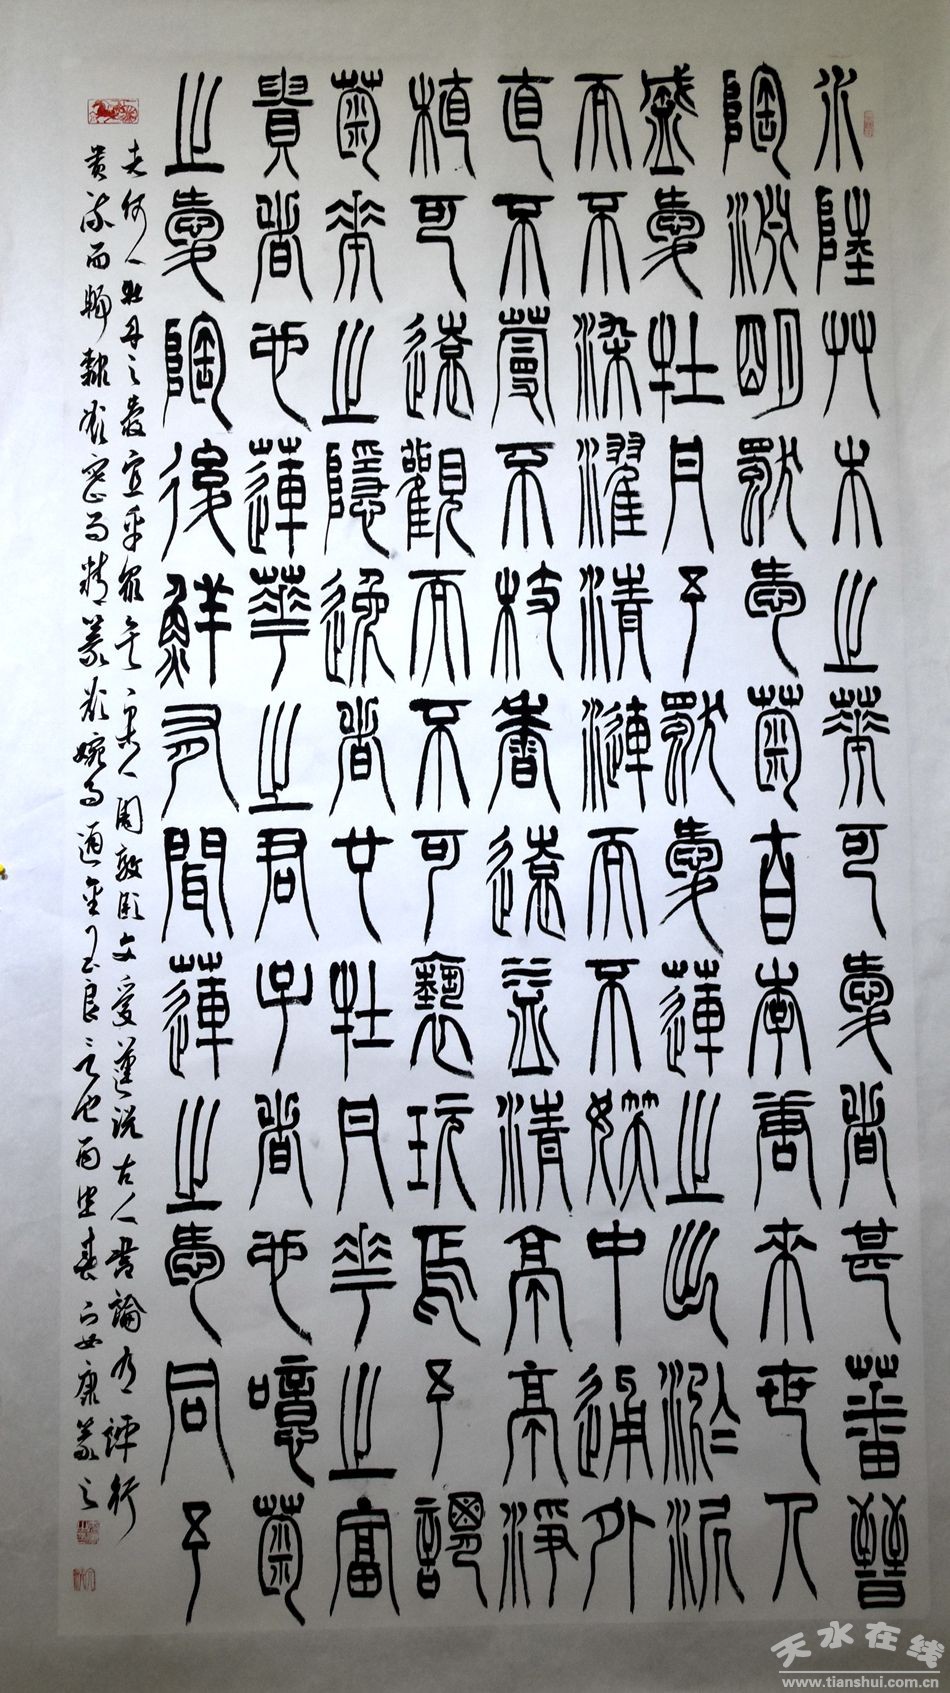 水陸艸木之華可愛者甚蕃晉
陶淵明獨愛菊自李唐來世人
盛愛牡丹予獨愛蓮之出淤泥
而不染濯清漣而不妖中通外
直不蔓不枝香遠益清亭亭淨
植可遠觀而不可褻玩焉予謂
菊華之隱逸者也牡丹華之富
貴者也蓮華之君子者也噫菊
之愛陶後鮮有聞蓮之愛同予
者何人牡丹之愛宜乎眾矣宋人周敦頤文愛蓮說古人書論有評行
貴流而暢隸欲密而精篆欲婉而通玉良言也丙申春康篆之
天水在线
www.tianshui.com.cn